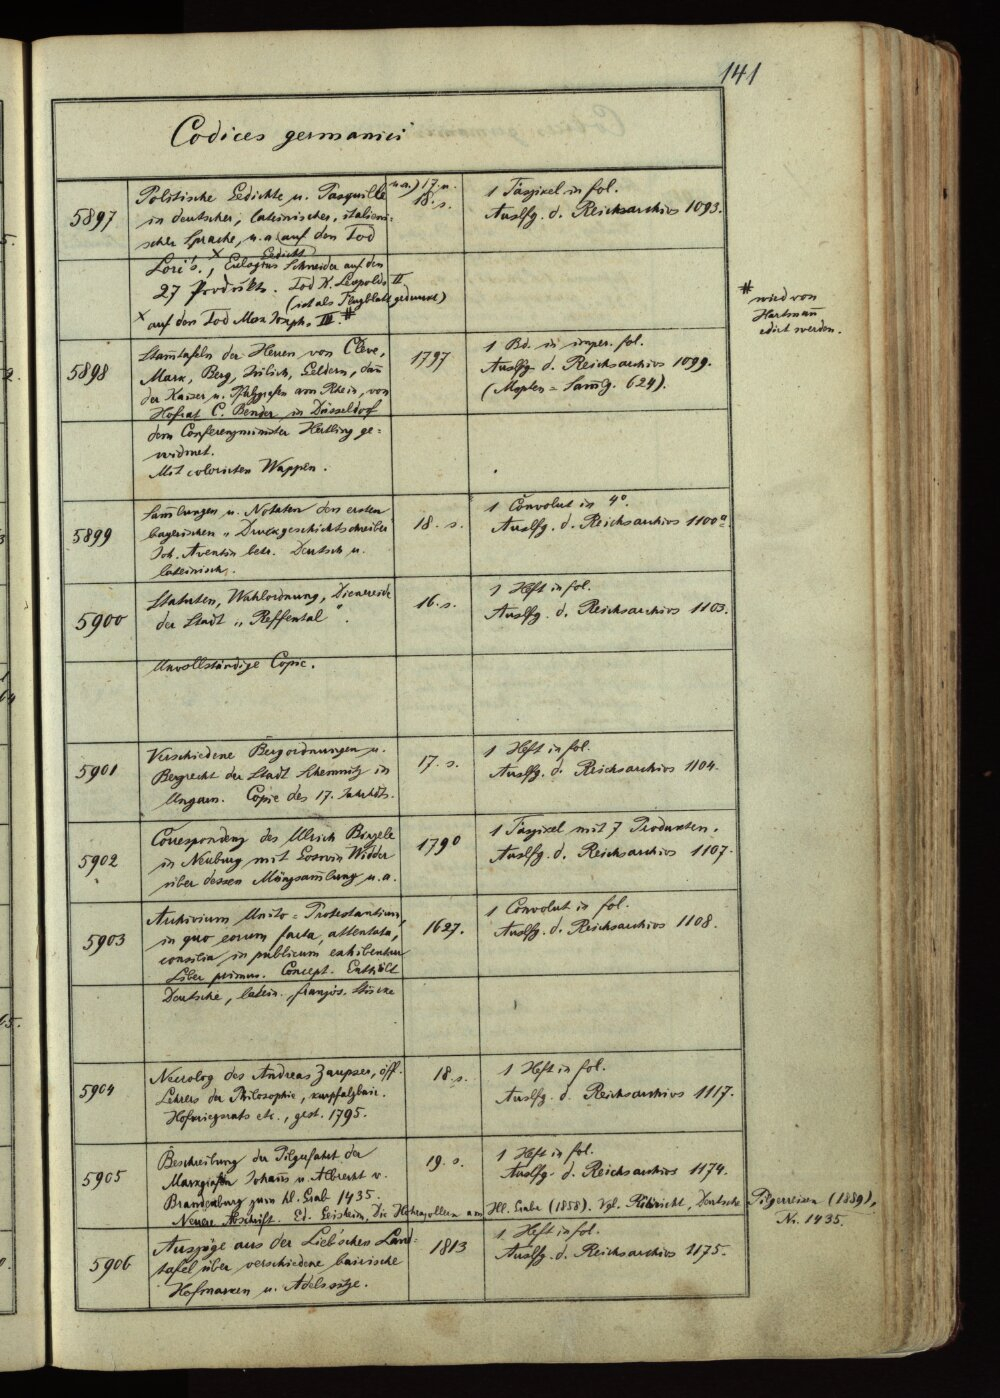 141
Codices germanici
5897
Politische Gedichte u. Pasquille
in deutscher, lateinischer, italieni-
scher Sprache, u. a. auf den Tod
Lori's., Eulogius Schneider auf den
Gedicht
27 Produkte. Tod K. Leopolds II
(ist als Flugblatt gedruckt)
x auf den Tod Max Joseph. III. #
17. u.
18. s.
1 Faszikel in fol.
Auslfg. d. Reichsarchivs 1093.
# wird von
Hartmann
edirt werden.
5898
Stam̄tafeln der Herren von Cleve,
Mark, Berg, Jülich, Geldern, dan̄
der Kaiser u. Pfalzgrafen am Rhein, von
Hofrat C. Bender in Düsseldorf
dem Conferenzminister Hertling ge-
widmet.
Mit colorirten Wappen.
1797
1 Bd. in imper. fol.
Auslfg. d. Reichsarchivs 1099.
(Mapten = Sam̄lg. 624).
5899
Sam̄lungen u. Notaten den ersten
bayerischen „Druckgeschichtschreiber"
Joh. Aventin betr. Deutsch u.
lateinisch.
18. s.
1 Convolut in 4°.
Auslfg. d. Reichsarchivs 1100a.
5900
Statuten, Wahlordnung, Dienereide
der Stadt „Reffental".
Unvollständige Copie.
16. s.
1 Heft in fol.
Auslfg. d. Reichsarchivs 1103.
5901
Verschiedene Bergordnungen u.
Bergrecht der Stadt Schemnitz in
Ungarn. Copie des 17. Jahrhdts.
17. s.
1 Heft in fol.
Auslfg. d. Reichsarchivs 1104.
5902
Correspondenz des Ulrich
in Neuburg mit Goswin Widder
über dessen Münzsam̄lung u. a.
1790
1 Faszikel mit 7 Produkten.
Auslfg. d. Reichsarchivs 1107.
5903
Archivium Unito = Protestantium,
in quo eorum facta, attentata,
consilia in publicum exhibentur
Liber primus. Concept. Enthält
Deutsche, latein. französ. Stücke
1627.
1 Convolut in fol.
Auslfg. d. Reichsarchivs 1108.
5904
Necrolog des Andreas Zaupser, öff.
Lehrers der Philosophie, kurpfalzbair.
Hofkriegsrats etc., gest. 1795.
18. s.
1 Heft in fol.
Auslfg. d. Reichsarchivs 1117.
5905
Beschreibung der Pilgerfahrt der
Markgrafen Johan̄s u. Albrecht v.
Brandenburg zum hl. Grab 1435.
Neuere Abschrift. Ed. Geisheim, Die Hohenzollern am Hl. Grabe (1858). Vgl. Röhricht, Deutsche Pilgerreisen (1889),
Nr. 1435.
19. s.
1 Heft in fol.
Auslfg. d. Reichsarchivs 1174.
5906
Auszüge aus der Lieb'schen Land-
tafel über verschiedene bairische
Hofmarken u. Adelssitze.
1813
1 Heft in fol.
Auslfg. d. Reichsarchivs 1175.